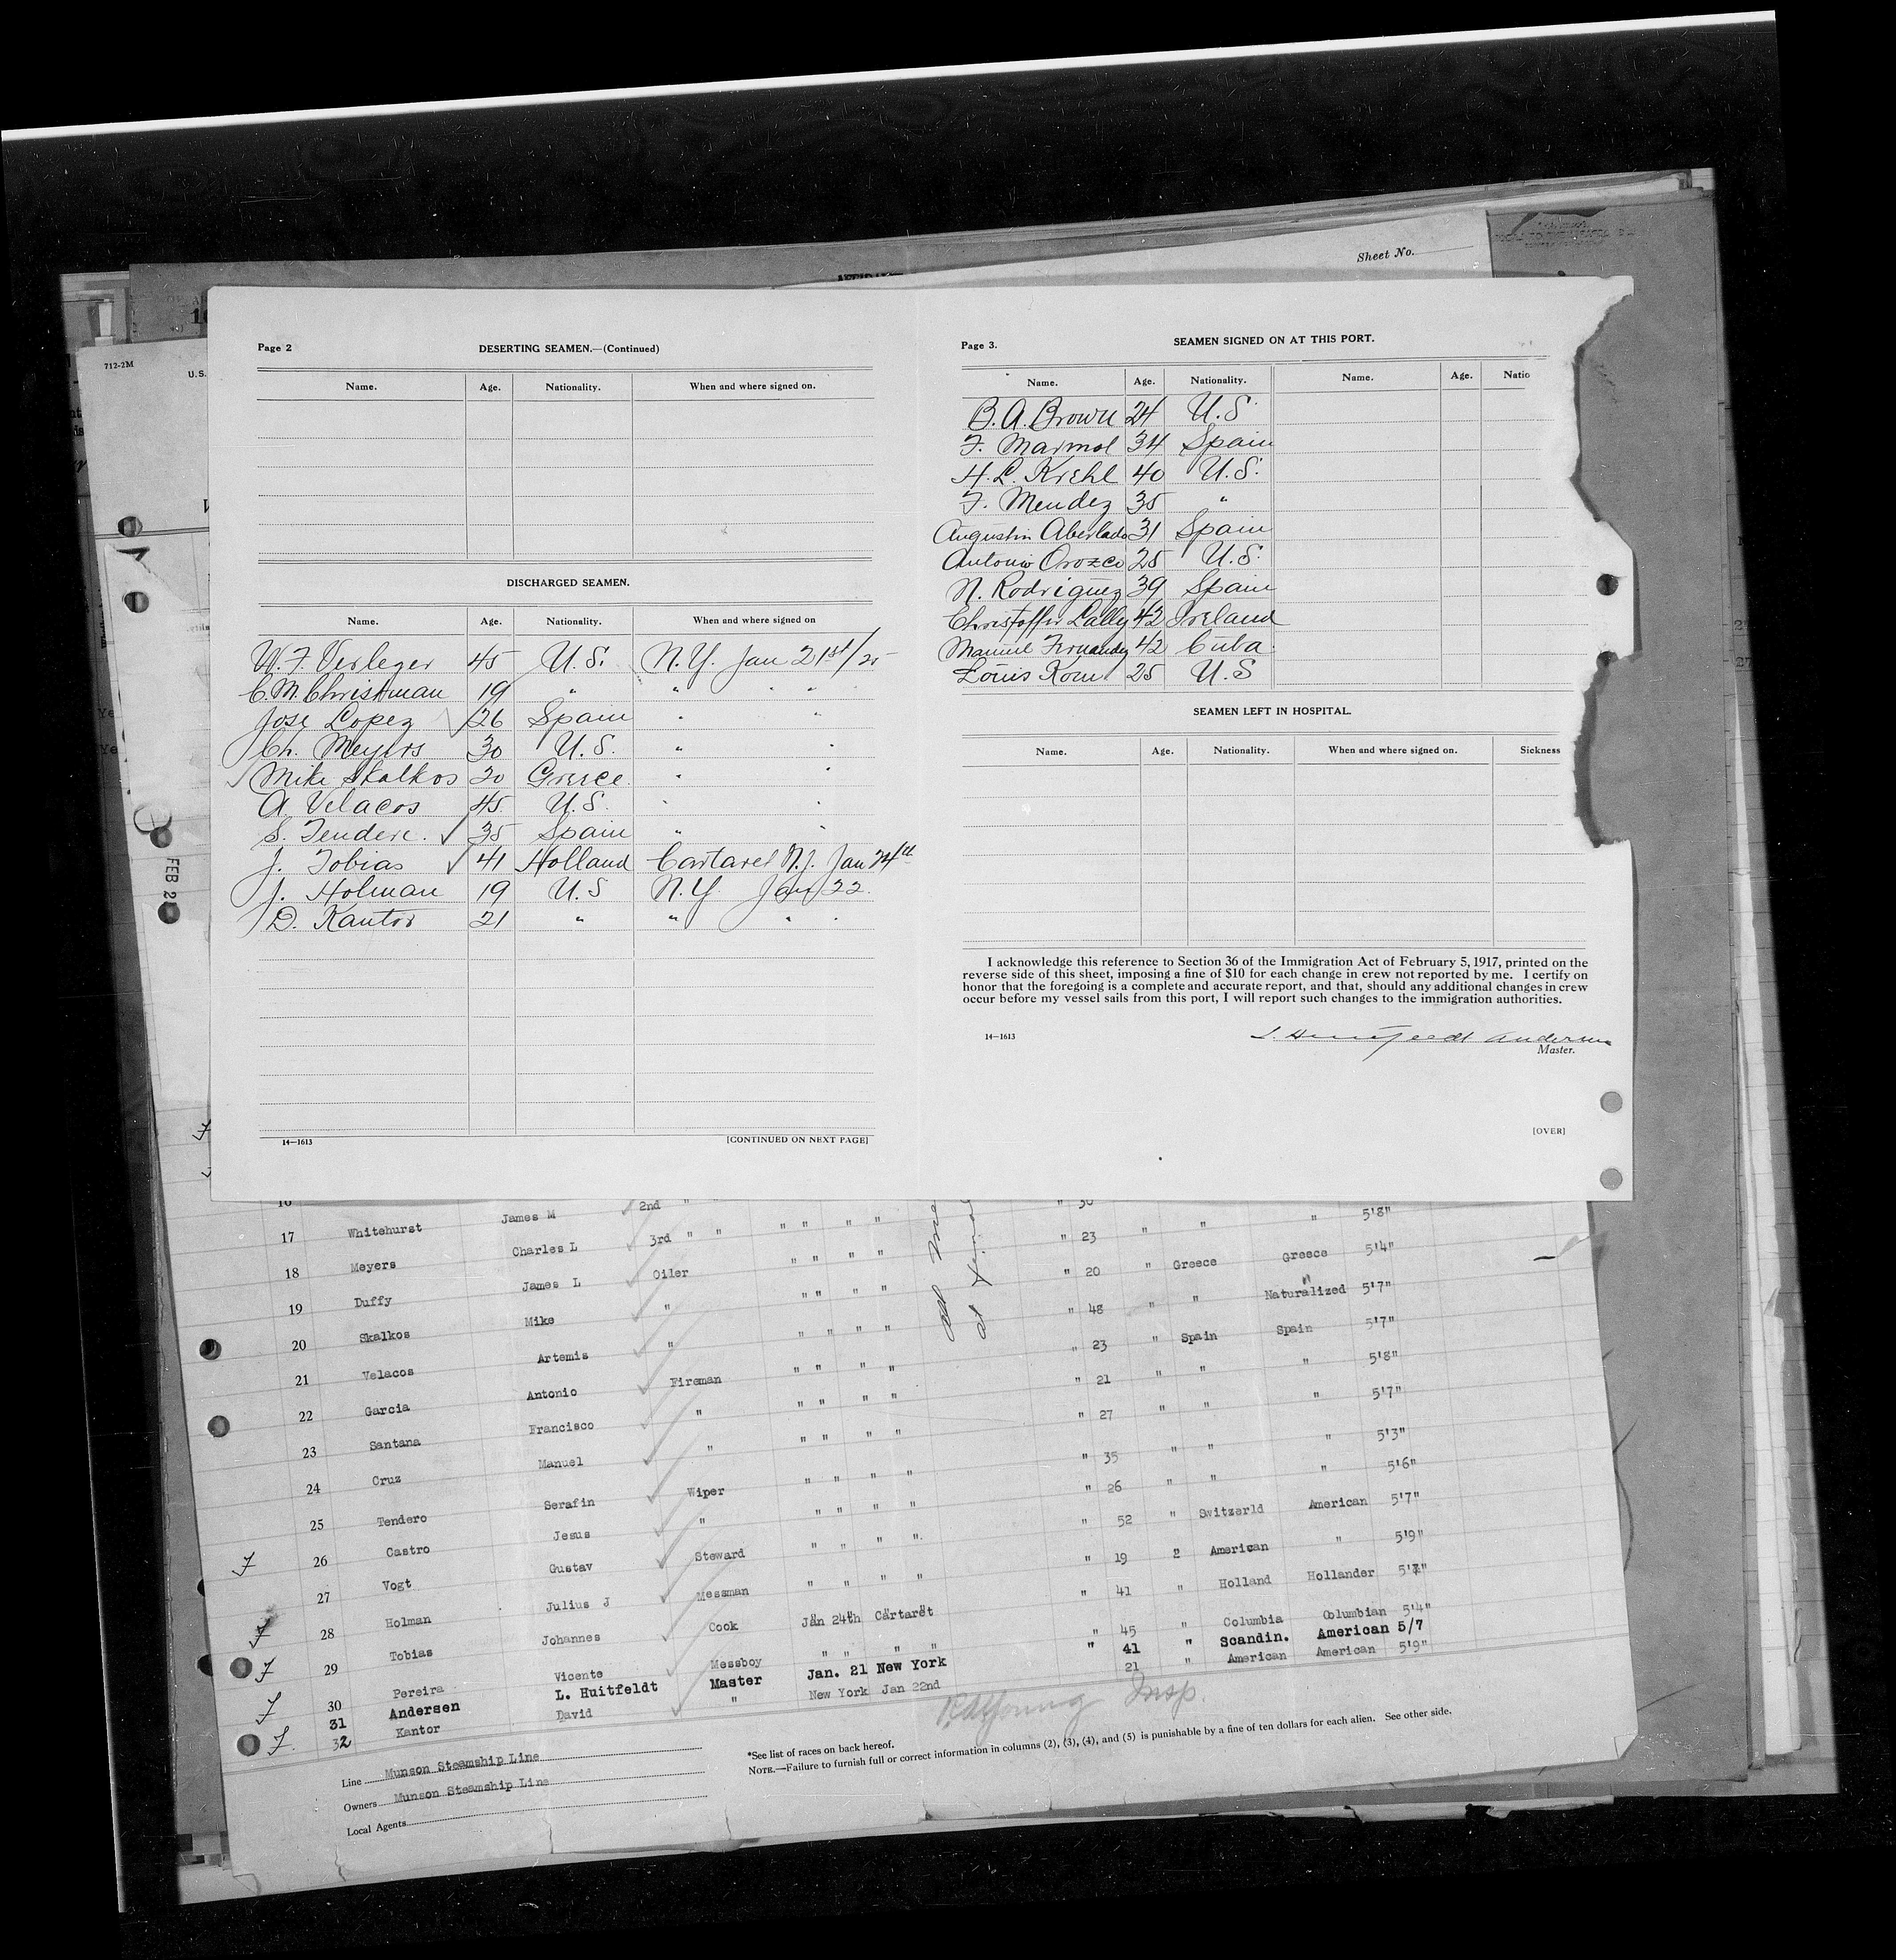 Sheet No.
712-2M
U.S.
FEB 2
Page 2
DESERTING SEAMEN.—(Continued)
Name. Age. Nationality. When and where signed on.
DISCHARGED SEAMEN.
Name. Age. Nationality. When and where signed on
W. F. Verleger 45 U.S. N.Y. Jan 21st/25
C. M. Christman 19 " " " "
Jose Lopez 26 Spain " "
Ch. Meyers 30 U.S. " "
Mike Skalkos 20 Greece " "
A. Velacos 45 U.S. " "
S. Tendere. 35 Spain " "
J. Tobias 41 Holland Cartaret N.J. Jan 24th
J. Holman 19 U.S N.Y. Jan 22.
D. Kantor 21 " " " "
14—1613
[CONTINUED ON NEXT PAGE]
Page 3.
SEAMEN SIGNED ON AT THIS PORT.
Name. Age. Nationality. Name. Age. Natio
B. A. Brown 24 U.S.
F. Marmol 34 Spain
H. L. Krehl 40 U.S.
F. Mendez 35 "
Augustin Aberlado 31 Spain
Antonio Orozco 25 U.S.
N. Rodriguez 39 Spain
Christoffer Lally 42 Ireland
Manuel Fernandez 42 Cuba
Louis Korn 25 U.S
SEAMEN LEFT IN HOSPITAL.
Name. Age. Nationality. When and where signed on. Sickness
I acknowledge this reference to Section 36 of the Immigration Act of February 5, 1917, printed on the
reverse side of this sheet, imposing a fine of $10 for each change in crew not reported by me. I certify on
honor that the foregoing is a complete and accurate report, and that, should any additional changes in crew
occur before my vessel sails from this port, I will report such changes to the immigration authorities.
14—1613
Andersen
Master.
[OVER]
16 James M 2nd " " 30
17 Whitehurst Charles L 3rd " " " " " " " 23 " " " 5'8"
18 Meyers James L Oiler " " " " " 20 " Greece Greece 5'4"
19 Duffy Mike " " " " " " 48 " " Naturalized 5'7"
20 Skalkos Artemis " " " " " " 23 " Spain Spain 5'7"
21 Velacos Antonio Fireman " " " " " 21 " " " 5'8"
22 Garcia Francisco " " " " " " 27 " " " 5'7"
23 Santana Manuel " " " " " " 35 " " " 5'3"
24 Cruz Serafin Wiper " " " " " 26 " " " 5'6"
25 Tendero Jesus " " " " " " 52 " Switzerld American 5'7"
26 Castro Gustav Steward " " " " " 19 2 American " 5'9"
27 Vogt Julius J Messman " " " " " 41 " Holland Hollander
28 Holman Johannes Cook Jan 24th Cartaret " 45 " Columbia Columbian 5'4"
29 Tobias Vicente Messboy " " " "
30 Pereira L. Huitfeldt Master Jan. 21 New York " 41 " Scandin. American 5/7
31 Andersen David " New York Jan 22nd 21 " American American 5'9"
32 Kantor
Insp.
Line Munson Steamship Line
Owners Munson Steamship Line
Local Agents
*See list of races on back hereof.
NOTE.—Failure to furnish full or correct information in columns (2), (3), (4), and (5) is punishable by a fine of ten dollars for each alien. See other side.